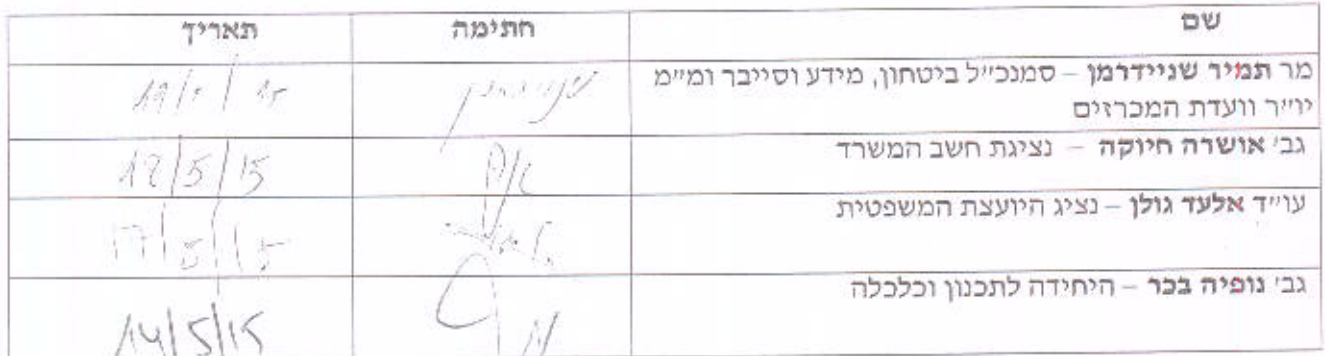 שם חתימה תאריך
מר תמיר שניידרמן – סמנכ״ל ביטחון, מידע וסייבר ומ״מ
יו״ר וועדת המכרזים
גב׳ אושרה חיוקה – נציגת חשב המשרד 12/5/15
עו״ד אלעד גולן – נציג היועצת המשפטית 17/5/15
גב׳ נופיה בכר – היחידה לתכנון וכלכלה 14/5/15